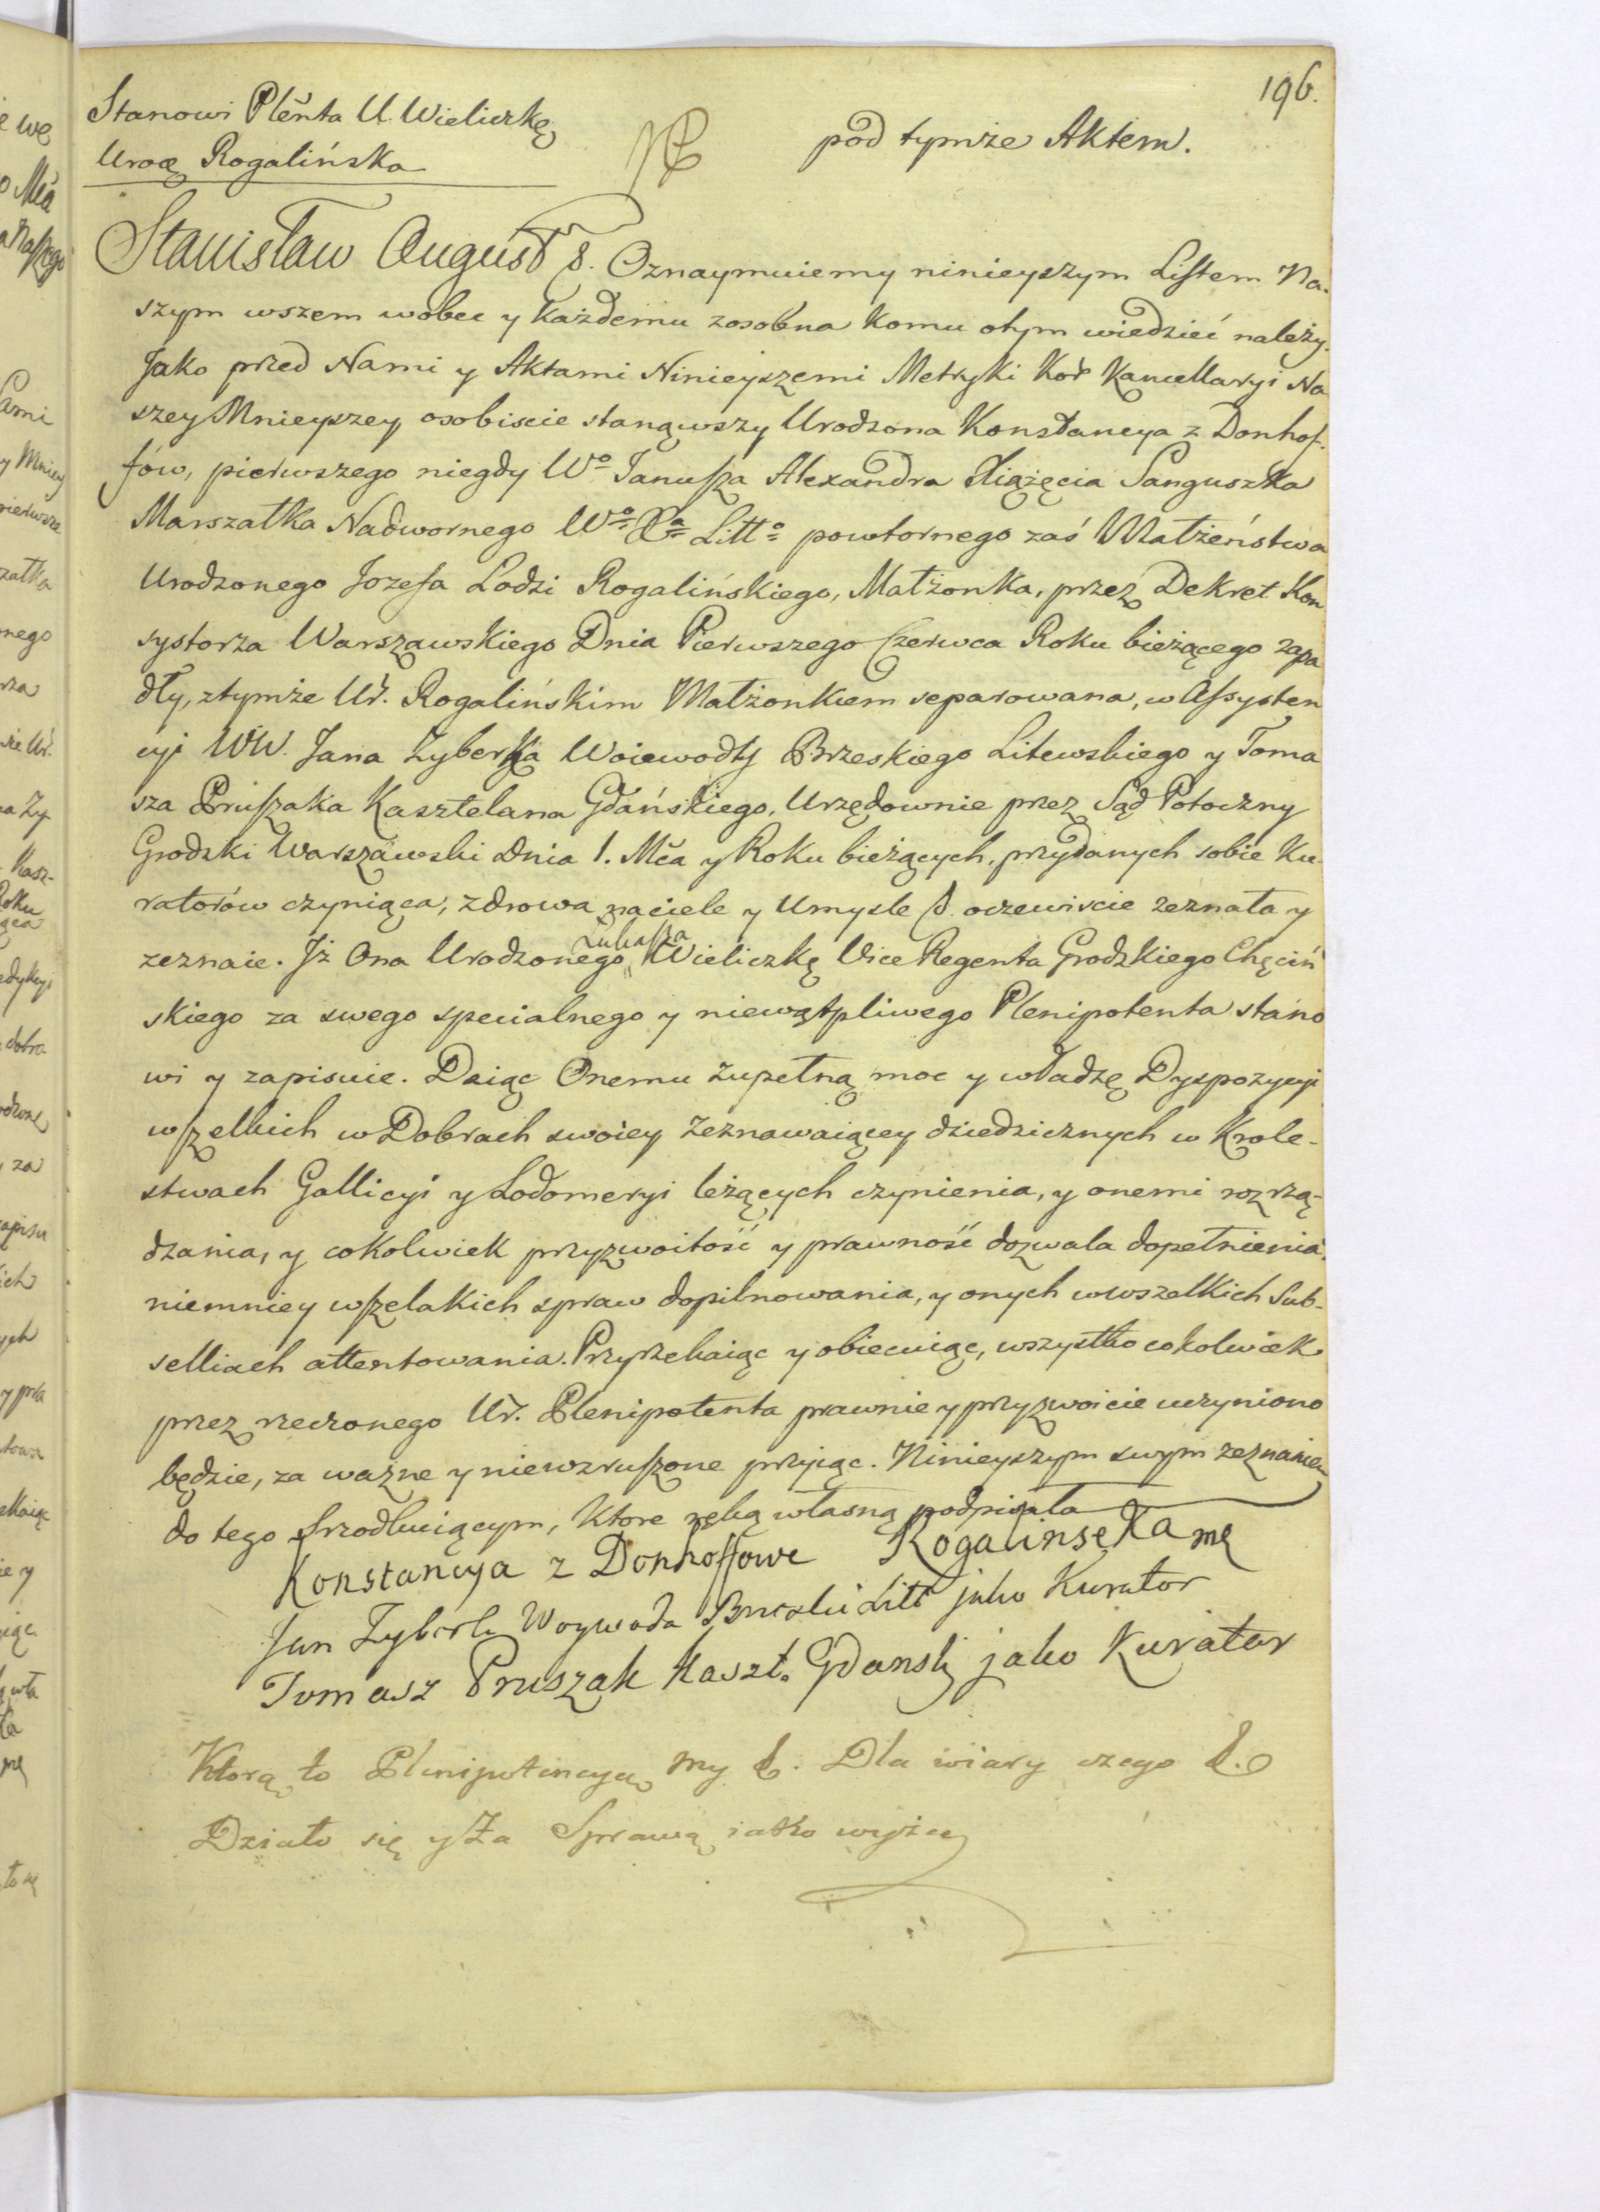 196.
Stanowi Pleńta U. Wieliczkę
Uroą Rogalińska
pod tymże Aktem.
Stanisław August &. Oznaymuiemy ninieyszym Listem Na-
szym wszem wobec y każdemu zosobna komu otym wiedzieć należy.
Jako przed Nami y Aktami Ninieyszemi Metryki Kor Kancellaryi Na
szey Mnieyszey osobiscie stanąwszy Urodzona Konstancya z Donhof-
fów, pierwszego niegdy Wo Janusza Alexandra Xiążęcia Sanguszka
Marszałka Nadwornego Wo Xa Litto powtornego zaś Małżeństwa
Urodzonego Jozefa Lodzi Rogalińskiego, Małżonka, przez Dekret Kon
systorza Warszawskiego Dnia Pierwszego Czerwca Roku bieżącego zapa
dły, ztymże Ur. Rogalińskim Małżonkiem separowana, w Assysten
cyi WW. Jana Zyberka Woiewody Brzeskiego Litewskiego y Toma
sza Pruszaka Kasztelana Gdańskiego, Urzędownie przez Sąd Potoczny
Grodzki Warszawski Dnia 1. Mca y Roku bieżących, przydanych sobie Ku-
ratorów czyniąca, zdrowa naciele y Umysle &. oczewiscie zeznała y
zeznaie. Jż Ona Urodzonego Łukasza Wieliczkę Vice Regenta Grodzkiego Chęciń
skiego za swego specialnego y niewątpliwego Plenipotenta stano
wi y zapisuie. Daiąc Onemu zupełną moc y władzę Dyspozycyi
wszelkich w Dobrach swoiey Zeznawaiącey dziedzicznych w Krole-
stwach Gallicyi y Lodomeryi leżących czynienia, y onemi rozrzą-
dzania, y cokolwiek przyzwoitość y prawność dozwala dopełnienia.
niemniey wszelakich spraw dopilnowania, y onych wwszelkich Sub-
selliach attentowania. Przyrzekaiąc y obiecuiąc, wszystko cokolwiek
przez rzeczonego Ur. Plenipotenta prawnie y przyzwoicie uczyniono
będzie, za ważne y niewzruszone przyiąc. Ninieyszym swym zeznaniem
do tego srzodkuiącym, ktore ręką własną podpisała
Konstancya z Donhoffowe Rogalinsęka mę
Jan Zyberk Woywoda Brzeski Litt jako Kurator
Tomasz Pruszak Kaszt. Gdanski jako Kurator
Ktorą to Plenipotencyą my &. Dla wiary czego &.
Działo się y Za Sprawą iako wyżey